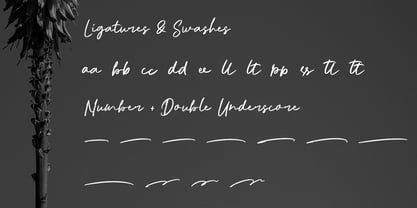 Ligatures & Swashes
aa bb cc dd ee ll tt pp ss tl tt
Number + Double Underscore